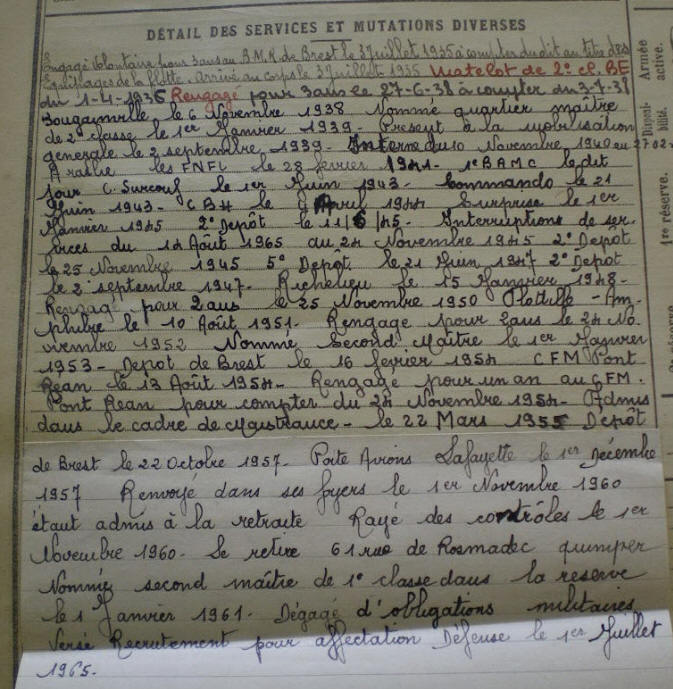 DÉTAIL DES SERVICES ET MUTATIONS DIVERSES
Engagé Volontaire pour 3 ans au B.M.R. de Brest le 3 Juillet 1935 à compter du dit au titre des
Equipages de la flotte. Arrivé au Corps le 3 Juillet 1935 Matelot de 2e cl. BE
du 1-4-1936 Rengagé pour 3 ans le 27-6-38 à compter du 3-7-38
Bougainville le 6 Novembre 1938 Nommé quartier maître
de 2e classe le 1er Janvier 1939 - Présent à la mobilisation
generale le 2 septembre 1939 - Interné du 10 Novembre 1940 au 27 02
A rallié les FNFL le 28 fevrier 1941 - 1e BAMC le dit
jour C. Surcouf le 1er Juin 1943 - Commando le 21
Juin 1943 - CBH le 9 Avril 1944 Surprise le 1er
Janvier 1945 2e Depôt le 11/6/45 - Interruptions de ser-
vices du 14 Août 1965 au 24 Novembre 1945 2e Depôt
le 25 Novembre 1945 5e Depot le 21 Juin 1947 2e Depôt
le 2 septembre 1947 - Richelieu le 15 Janvier 1948 -
Rengagé pour 2 ans le 25 Novembre 1950 Flottille - Am-
phibie le 10 Août 1951 - Rengage pour 2 ans le 24 No
vembre 1952 Nommé Second Maître le 1er Janvier
1953 - Depot de Brest le 16 fevrier 1954 CFM Pont
Rean le 13 Août 1954 - Rengagé pour un an au CFM.
Pont Rean pour compter du 24 Novembre 1954 - Admis
dans le cadre de Maistrance - le 22 Mars 1955 Depôt
de Brest le 22 Octobre 1957 - Porte Avions Lafayette le 1er Décembre
1957 Renvoyé dans ses foyers le 1er Novembre 1960
étant admis à la retraite Rayé des contrôles le 1er
Novembre 1960 - Se retire 61 rue de Rosmadec quimper
Nommé second maître de 1e classe dans la reserve
le 1 Janvier 1961 - Dégagé d'obligations militaires
Versé Recrutement pour affectation Défense le 1er Juillet
1965 -
Armée
active.
Disponi-
bilité.
1re réserve.